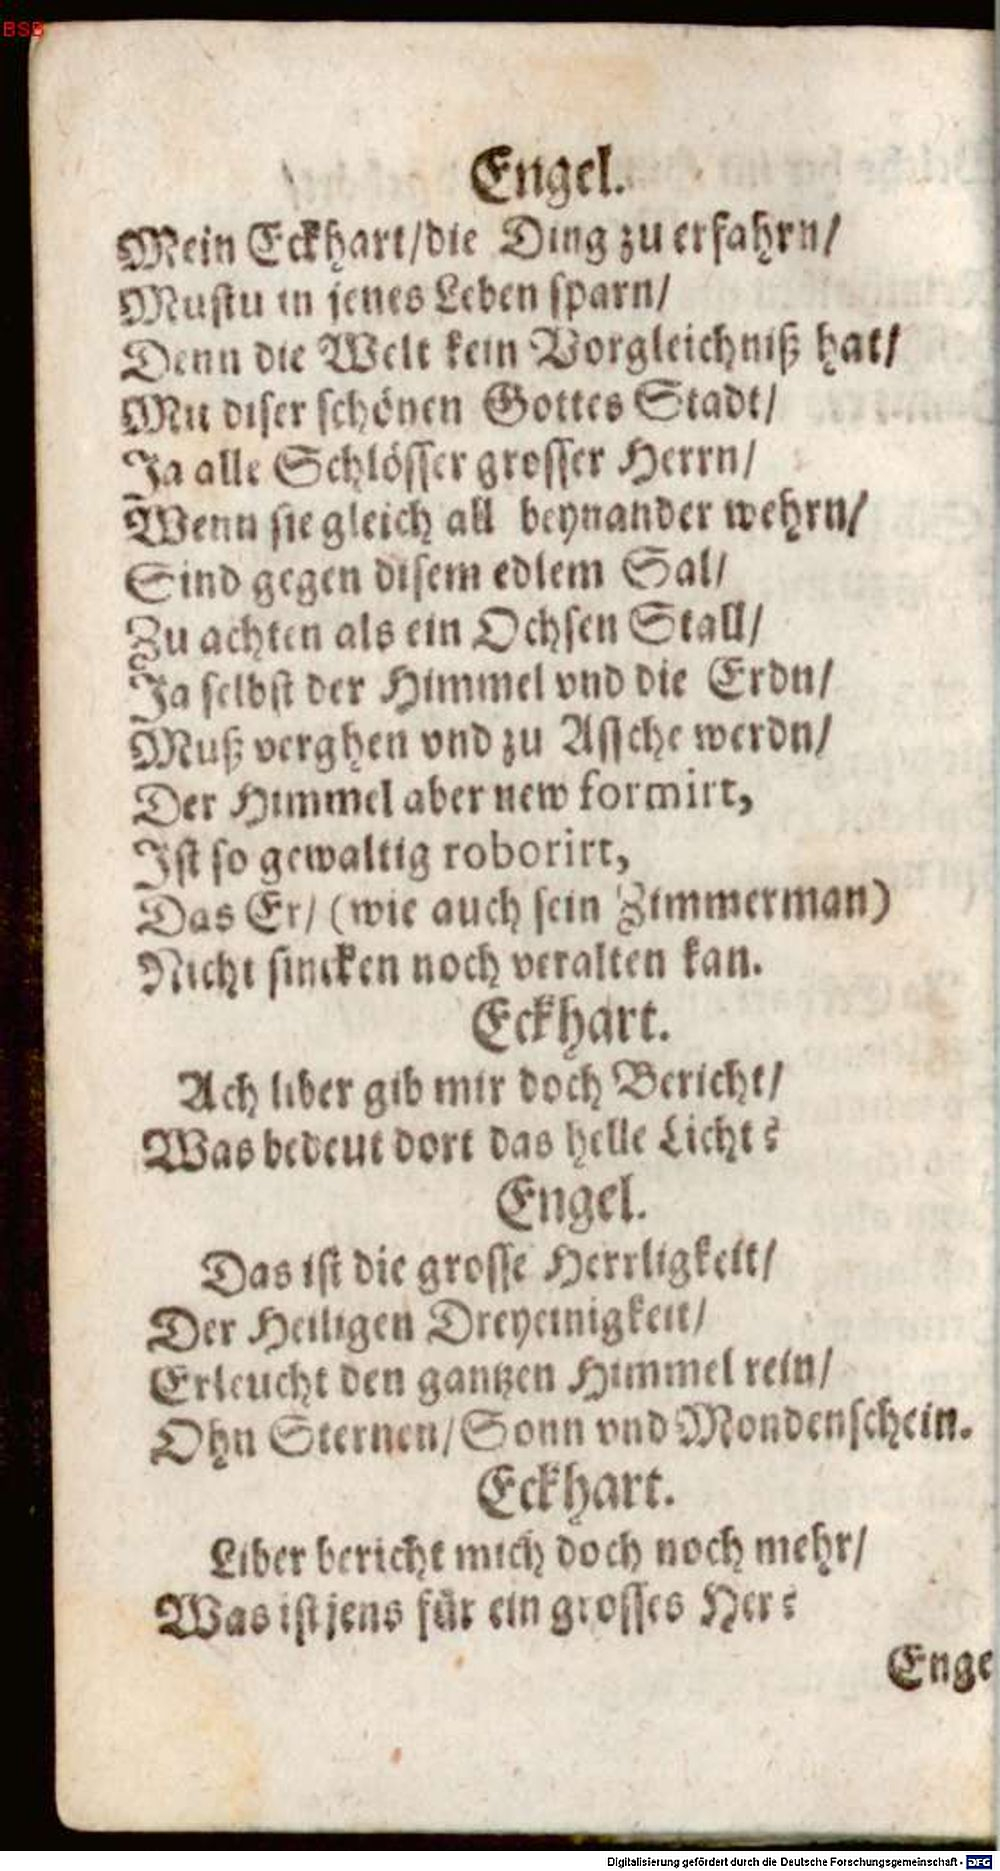 BSB
Engel.
Mein Eckhart/die Ding zu erfahrn/
Mustu in jenes Leben sparn/
Denn die Welt kein Vorgleichniß hat/
Mit diser schönen Gottes Stadt/
Ja alle Schlösser grosser Herrn/
Wenn sie gleich all beynander wehrn/
Sind gegen disem edlem Sal/
Zu achten als ein Ochsen Stall/
Ja selbst der Himmel vnd die Erdn/
Muß verghen vnd zu Assche werdn/
Der Himmel aber new formirt,
Ist so gewaltig roborirt,
Das Er/ (wie auch sein Zimmerman)
Nicht sincken noch veralten kan.
Eckhart.
Ach liber gib mir doch Bericht/
Was bedeut dort das helle Licht?
Engel.
Das ist die grosse Herrligkeit/
Der Heiligen Dreyeinigkeit/
Erleucht den gantzen Himmel rein/
Ohn Sternen/Sonn vnd Mondenschein.
Eckhart.
Liber bericht mich doch noch mehr/
Was ist jens für ein grosses Her?
Enge
Digitalisierung gefördert durch die Deutsche Forschungsgemeinschaft - DFG